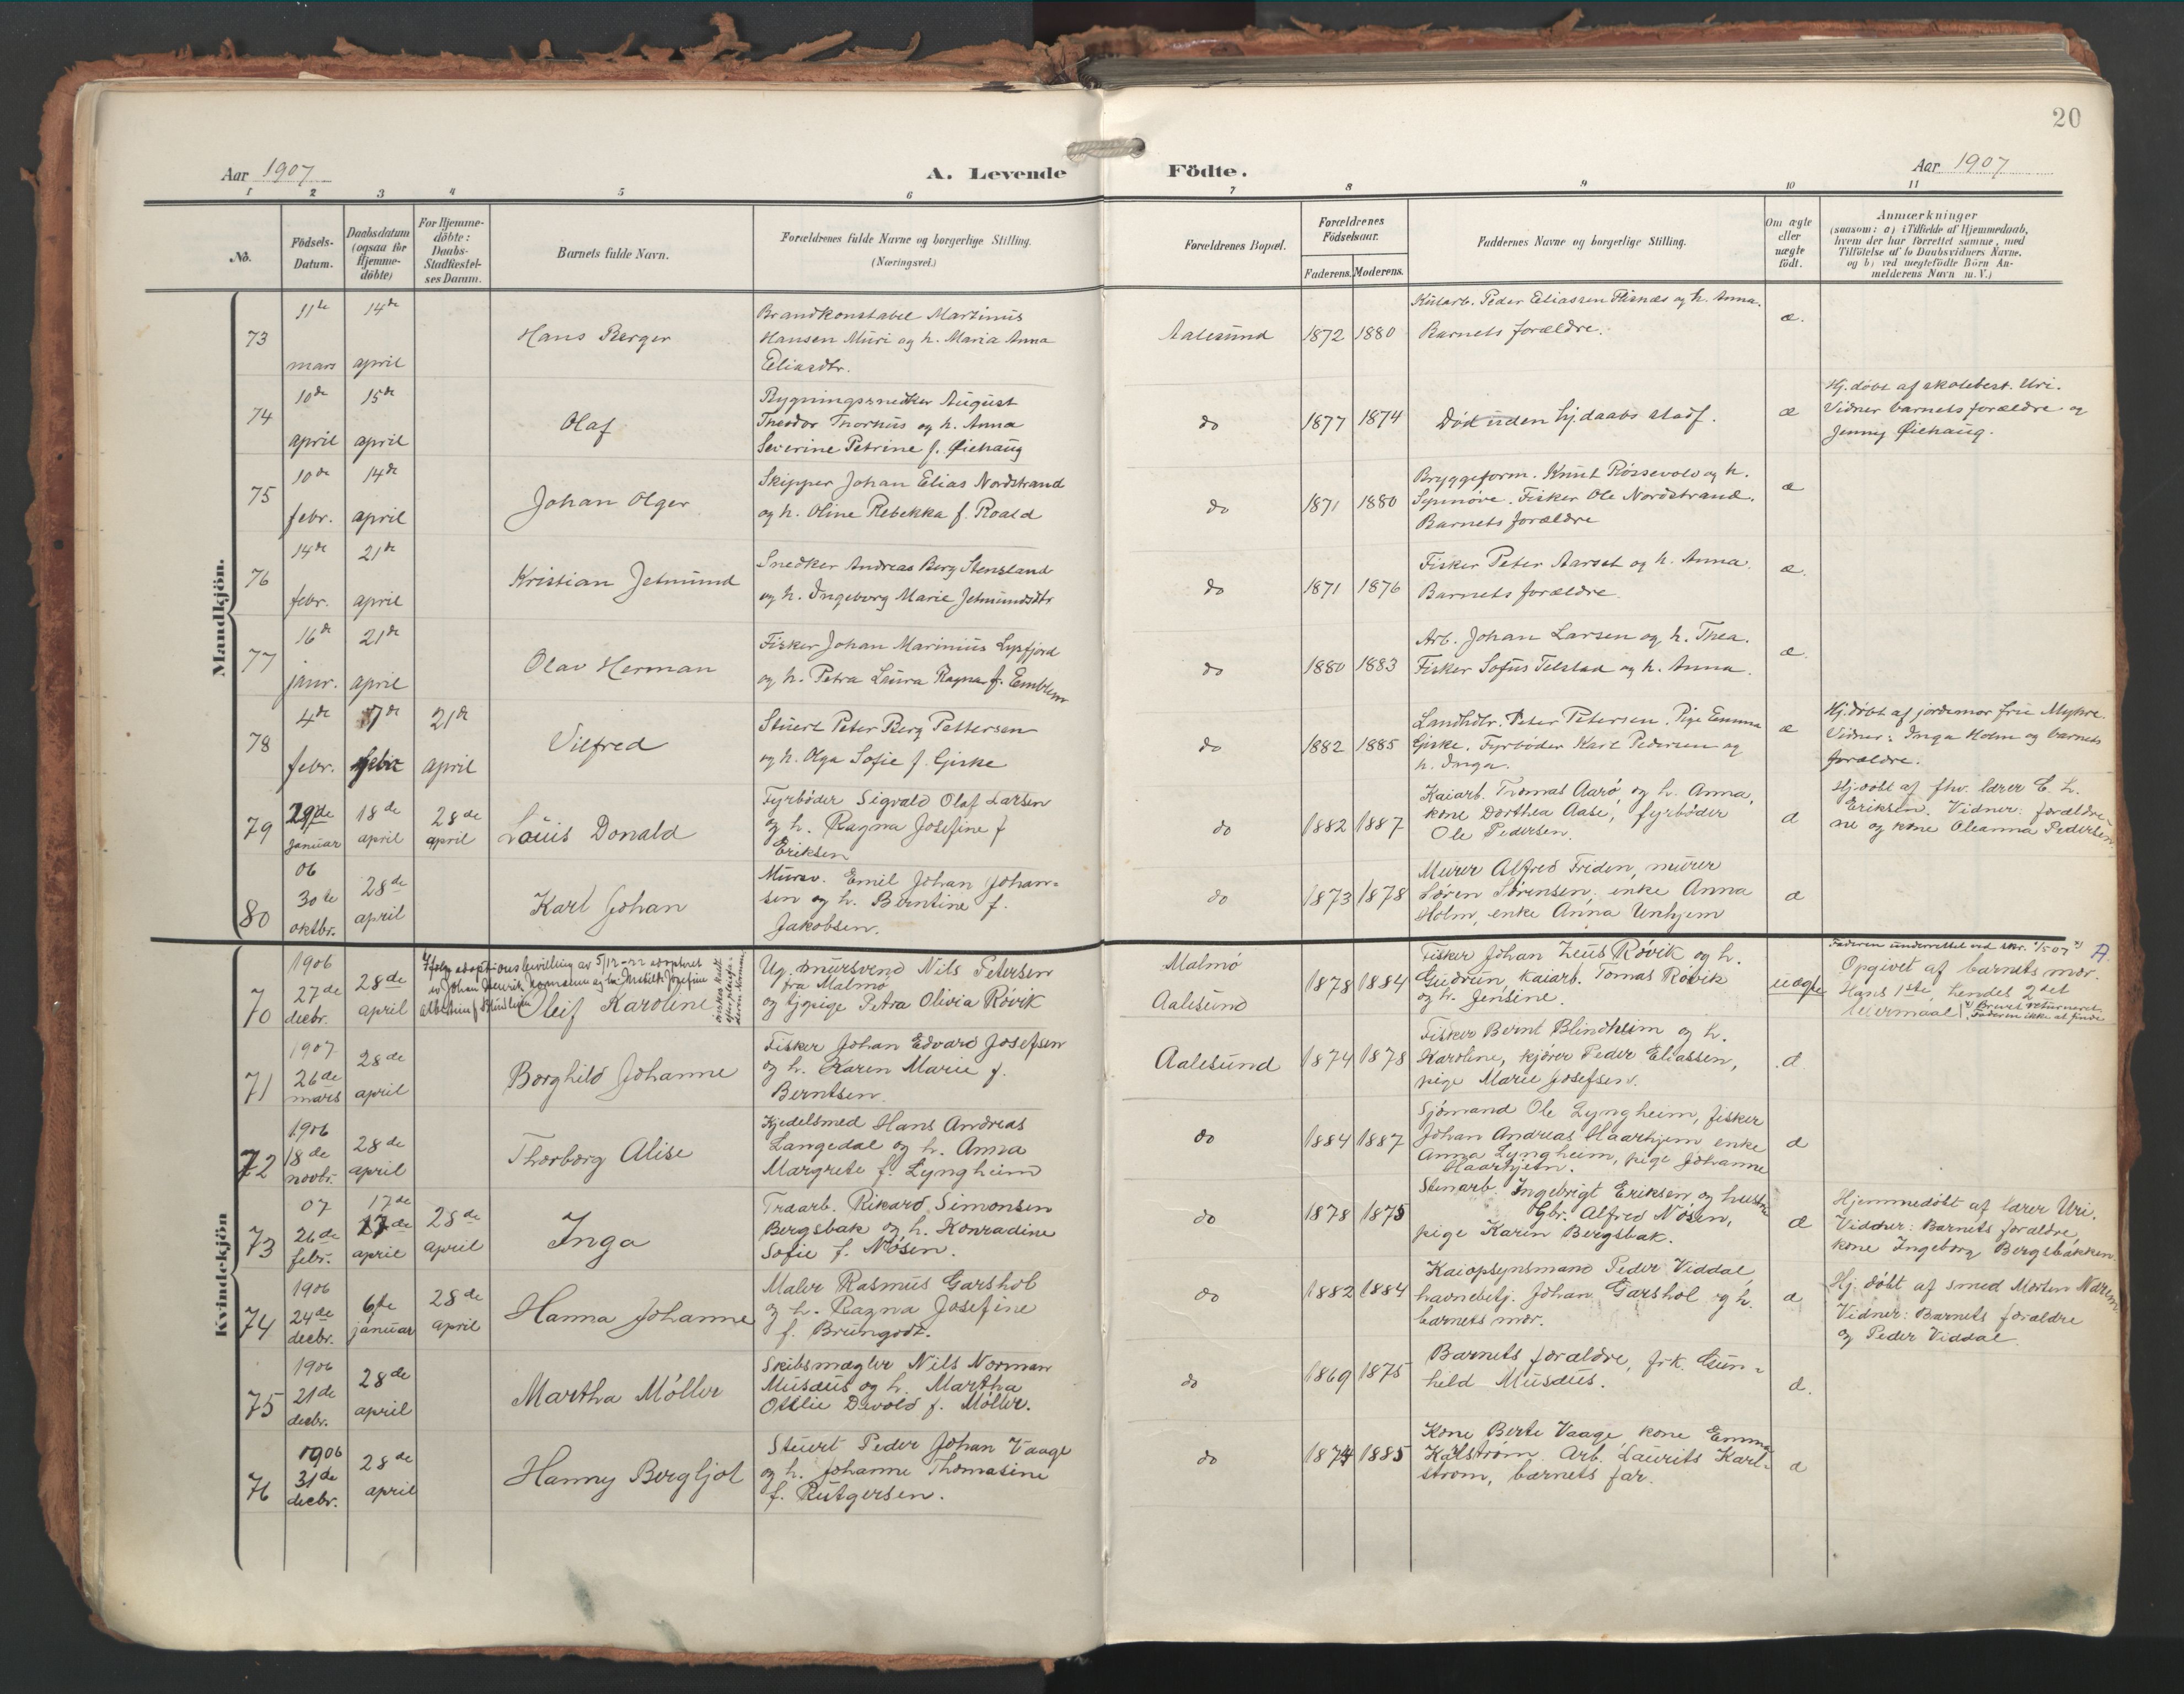 20
Aar 1907
A. Levende
Födte.
Aar 1907
1 2 3 4 5 6 7 8 9 10 11
No.
Födsels-
Datum.
Daabsdatum
(ogsaa for
Hjemme-
döbte)
For Hjemme-
döbte:
Daabs-
Stadfæstel-
ses Datum.
Barnets fulde Navn.
Forældrenes fulde Navne og borgerlige Stilling.
(Næringsvei.)
Forældrenes Bopæl.
Forældrenes
Födselsaar.
Faderens. Moderens.
Faddernes Navne og borgerlige Stilling.
Om ægte
eller
uægte
födt.
Anmærkninger
(saasom: a) i Tilfælde af Hjemmedaab,
hvem der har forrettet samme, med
Tilföielse af to Daabsvidners Navne.
og b) ved uægtefödte Börn An-
melderens Navn m. V.)
Mandkjön.
73
11te mars
14de april
Hans Berger
Brandkonstabel Martinus
Hansen Muri og h. Maria Anna
Eliasdtr.
Aalesund
1872 1880
Peder Eliassen Flisnæs og h. Anna.
Barnets forældre.
æ.
74
10de april
15de april
Olaf
Bygningssnedker August
Theodor Thornus og h. Anna
Severine Petrine f. Øiehaug
do
1877 1874
Död uden hj.daabs stadf.
æ
Hj.döbt af skolebest. Uri.
Vidner barnets forældre og
Jenny Øiehaug.
75
10de febr.
14de april
Johan Olger
Skipper Johan Elias Nordstrand
og h. Oline Rebekka f. Roald
do
1871 1880
Bryggeform. Knut Rössevold og h.
Synnöve. Fisker Ole Nordstrand.
Barnets forældre
æ
76
14de febr.
21de april
Kristian Jetmund
Snedker Andreas Berg Stensland
og h. Ingeborg Marie Jetmundsdtr
do
1871 1876
Fisker Peter Aarset og h. Anna.
Barnets forældre.
æ.
77
16de janr.
21de april
Olav Herman
Fisker Johan Marinius Lysfjord
og h. Petra Laura Ragna f. Emblem
do
1880 1883
Arb. Johan Larsen og h. Thea.
Fisker Sofus Telstad og h. Anna.
æ.
78
4de febr.
7de febr
21de april
Vilfred
Stuert Peter Berg Pettersen
og h. Olga Sofie f. Giske
do
1882 1885
Landhdlr. Peter Petersen. Pige Emma
Giske. Fyrböder Karl Pedersen og
h. Inga.
æ
Hj.döbt af jordemor fru Myhre.
Vidner: Inga Holm og barnets
forældre.
79
29de januar
18de april
28de april
Louis Donald
Fyrböder Sigvald Olaf Larsen
og h. Ragna Josefine f
Eriksen
do
1882 1887
Kaiarb. Tomas Aarö, og h. Anna,
kone Dorthea Aase, fyrböder
Ole Pedersen.
æ
Hj döbt af fhv. lærer E. L.
Eriksen. Vidner: forældre-
ne og kone Oleanna Pedersen
80
06
30te oktbr.
28de april
Karl Johan
Mursv. Emil Johan Johan-
sen og h. Berntine f.
Jakobsen.
do
1873 1878
Murer Alfred Friden, murer
Sören Sörensen, enke Anna
Holm, enke Anna Unhjem
æ
Kvindekjön
70
1906
27de decbr.
28de april
Ifølge adoptionsbevilling av 5/12-22 adopteret
av Johan Henrik
Oleif Karoline
Ug. mursvend Nils Petersen
fra Malmö
og tjpige Petra Olivia Rövik
Malmö
Aalesund
1878 1884
Fisker Johan Zeus Rövik og h.
Gudrun, kaiarb. Tomas Rövik
og h. Jensine.
uægte
Faderen underrettet ved skr. 1/5 07 x)
A.
Opgivet af barnets mor.
Hans 1ste, hendes 2det
leiermaal
x) Brevet returneret
Faderen ikke at finde
71
1907
26de mars
28de april
Borghild Johanne
Fisker Johan Edvard Josefsen
og h. Karen Marie f.
Berntsen.
Aalesund
1874 1878
Fisker Bernt Blindheim og h.
Karoline, kjörer Peder Eliassen,
pige Marie Josefsen.
æ.
72
1906
18de novbr.
28de april
Thorborg Alise
Kjedelsmed Hans Andreas
Langedal og h. Anna
Margrete f. Lyngheim
do
1884 1887
Sjömand Ole Lyngheim, fisker
Johan Andreas Haarhjem enke
Anna Lyngheim, pige Johanne
Haarhjem.
æ
73
07
26de febr.
17de
17de april
28de april
Inga
Traarb. Rikard Simonsen
Bergsbak og h. Konradine
Sofie f. Nösen.
do
1878 1875
Stenarb. Ingebrigt Eriksen og hustru
Gbr. Alfred Nösen,
pige Karen Bergsbak.
æ
Hjemmedöbt af lærer Uri.
Vidner: Barnets forældre,
kone Ingeborg Bergsbakken
74
1906
24de decbr.
6te januar
28de april
Hanna Johanne
Maler Rasmus Garshol
og h. Ragna Josefine
f. Brungodt.
do
1882 1884
Kaiopsynsmand Peder Viddal,
havnebetj. Johan Garshol og h.
barnets mor.
æ
Hj. döbt af smed Morten Nærem
Vidner: Barnets forældre
og Peder Viddal
75
1906
21de decbr.
28de april
Martha Möller
Skibsmægler Nils Norman
Musæus og h. Martha
Ottilie Devold f. Möller.
do
1869 1875
Barnets forældre, frk. Gun-
hild Musæus.
æ.
76
1906
31de decbr.
28de april
Hanny Bergljot
Stuert Peder Johan Vaage
og h. Johanne Thomasine
f. Rutgersen.
do
1874 1885
Kone Berte Vaage kone Emma
Kalström. Arb. Laurits Karl-
strom, barnets far.
æ